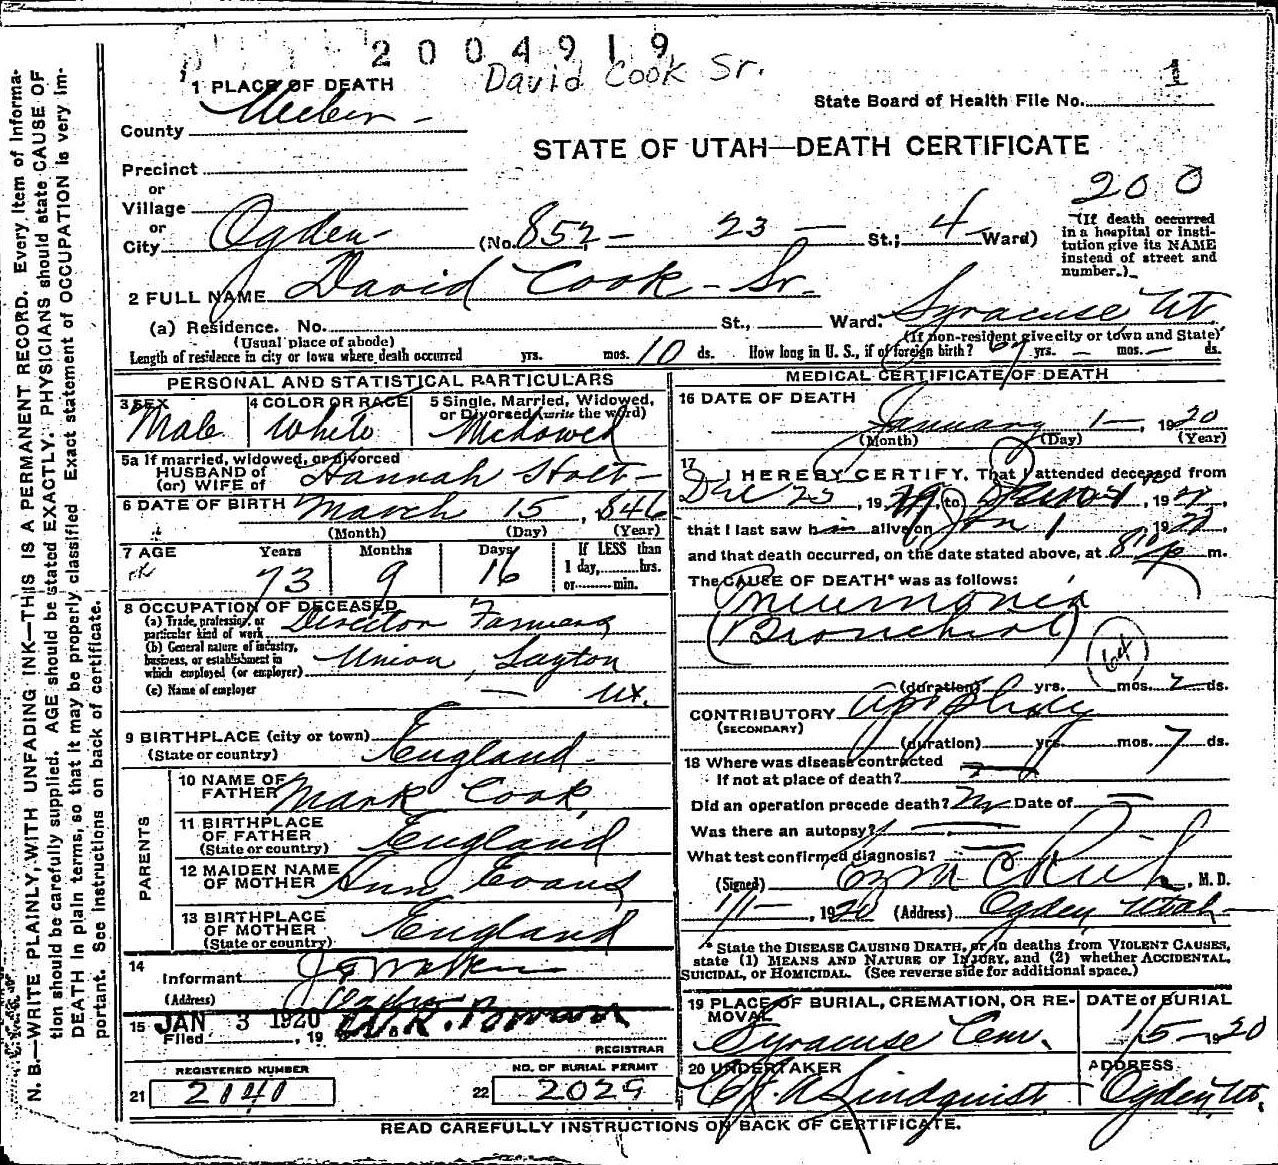 2004919
David Cook Sr.
1
1 PLACE OF DEATH
State Board of Health File No.
County Weber
STATE OF UTAH—DEATH CERTIFICATE
Precinct
or
Village
or
City Ogden (No. 852 - 23 — St.; 4 Ward)
200
(If death occurred in a hospital or institution give its NAME instead of street and number.)
2 FULL NAME David Cook - Sr.
(a) Residence. No. St., Ward. Syracuse Ut.
(Usual place of abode) (If non-resident give city or town and State)
Length of residence in city or town where death occurred yrs. mos. 10 ds. How long in U. S., if of foreign birth? yrs. — mos. — ds.
PERSONAL AND STATISTICAL PARTICULARS
3 SEX Male
4 COLOR OR RACE White
5 Single, Married, Widowed, or Divorced (write the word) Widowed
5a If married, widowed, or divorced
HUSBAND of
(or) WIFE of Hannah Holt
6 DATE OF BIRTH March 15, 1846
(Month) (Day) (Year)
7 AGE Years 73 Months 9 Days 16 If LESS than 1 day, hrs. or min.
8 OCCUPATION OF DECEASED
(a) Trade, profession, or particular kind of work Director Farmers
(b) General nature of industry, business, or establishment in which employed (or employer) Union, Layton
(c) Name of employer — Ut.
9 BIRTHPLACE (city or town)
(State or country) England
PARENTS
10 NAME OF FATHER Mark Cook
11 BIRTHPLACE OF FATHER (State or country) England
12 MAIDEN NAME OF MOTHER Ann Evans
13 BIRTHPLACE OF MOTHER (State or country) England
14
Informant
(Address)
15 JAN 3 1920
Filed , 19
REGISTRAR
REGISTERED NUMBER
21 2140
NO. OF BURIAL PERMIT
22 2029
MEDICAL CERTIFICATE OF DEATH
16 DATE OF DEATH
January 1 — , 1920
(Month) (Day) (Year)
17 I HEREBY CERTIFY, That I attended deceased from
Dec 23, 1919, to , 19
that I last saw him alive on Jan 1 1920
and that death occurred, on the date stated above, at m.
The CAUSE OF DEATH* was as follows:
Pneumonia
(Bronchial)
(duration) yrs. mos. 2 ds.
CONTRIBUTORY Apoplexy
(SECONDARY)
(duration) yrs. mos. 7 ds.
18 Where was disease contracted
If not at place of death?
Did an operation precede death? No Date of
Was there an autopsy?
What test confirmed diagnosis?
(Signed) Ezra C Rich, M. D.
1/1 — , 1920 (Address) Ogden Utah
* State the DISEASE CAUSING DEATH, or in deaths from VIOLENT CAUSES,
state (1) MEANS AND NATURE OF INJURY, and (2) whether ACCIDENTAL,
SUICIDAL, or HOMICIDAL. (See reverse side for additional space.)
19 PLACE OF BURIAL, CREMATION, OR REMOVAL
Syracuse Cem.
DATE of BURIAL
1/5 — 1920
20 UNDERTAKER
Lindquist
ADDRESS
Ogden, Ut.
READ CAREFULLY INSTRUCTIONS ON BACK OF CERTIFICATE.
N. B.—WRITE PLAINLY, WITH UNFADING INK—THIS IS A PERMANENT RECORD. Every item of information should be carefully supplied. AGE should be stated EXACTLY. PHYSICIANS should state CAUSE OF DEATH in plain terms, so that it may be properly classified. Exact statement of OCCUPATION is very important. See instructions on back of certificate.